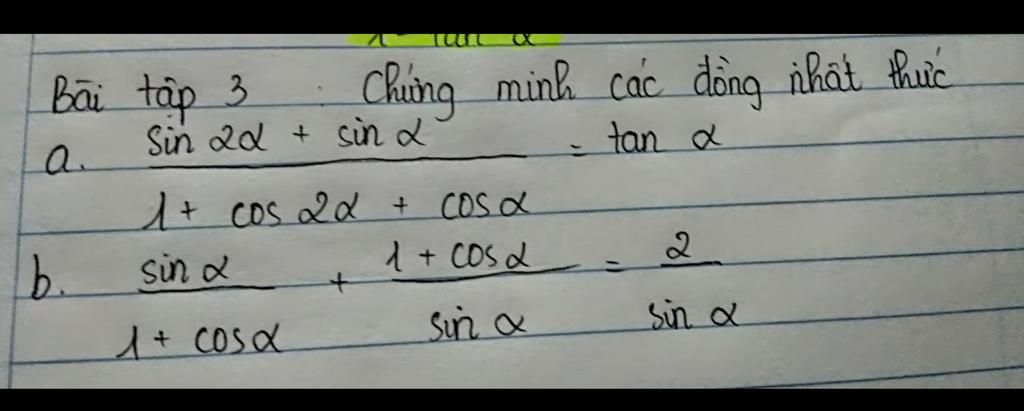 1 - tan α
Bài tập 3 : Chứng minh các đồng nhất thức
a. sin 2α + sin α / 1 + cos 2α + cos α = tan α
b. sin α / 1 + cos α + 1 + cos α / sin α = 2 / sin α